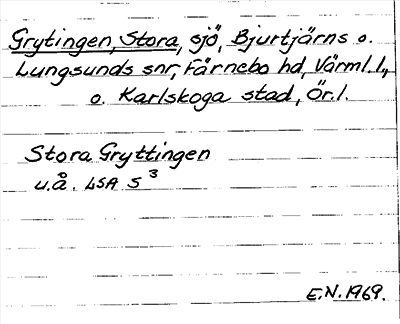 Grytingen, Stora, sjö, Bjurtjärns o.
Lungsunds snr, Färnebo hd, Värml. l.,
o. Karlskoga stad, Ör. l.
Stora Gryttingen
u.å. LSA S³
E.N. 1969.